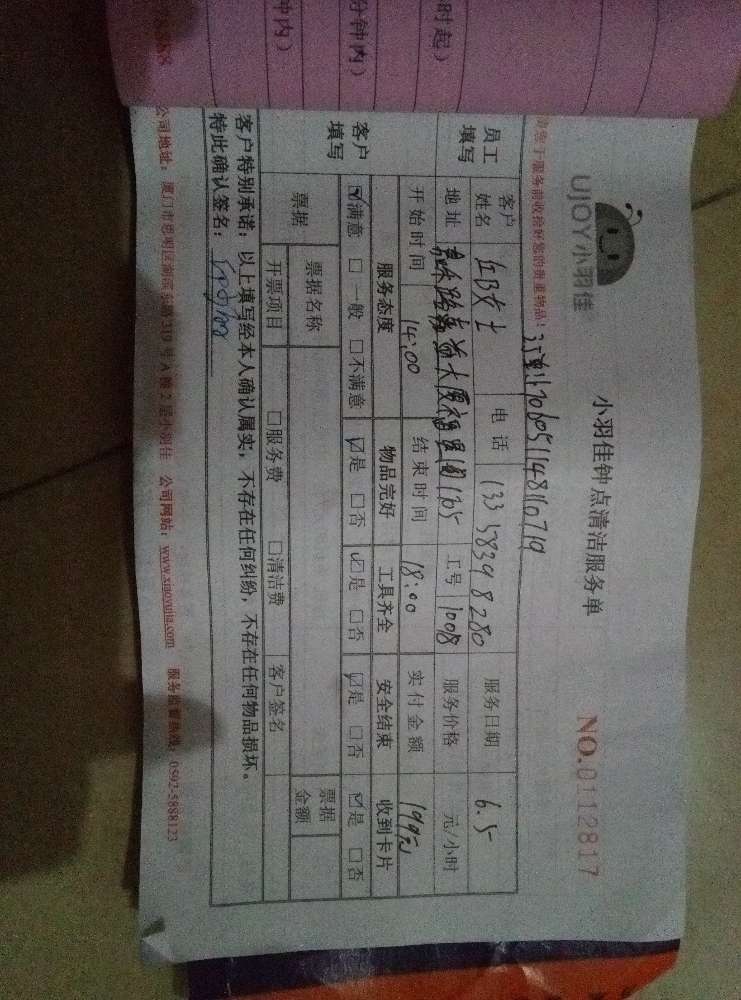 时起)
分钟内)
钟内)
UJOY小羽佳
小羽佳钟点清洁服务单
NO.0112817
服务前收拾好您的贵重物品!
员工填写
客户姓名
女士
电话
133 5839 8280
服务日期
6.5
地址
工号
1008
服务价格
元/小时
开始时间
14:00
结束时间
18:00
实付金额
199元
客户填写
服务态度
物品完好
工具齐全
安全结束
收到卡片
☑满意 □一般 □不满意
☑是 □否
☑是 □否
☑是 □否
☑是 □否
票据
票据名称
票据金额
开票项目
□服务费 □清洁费
客户签名
客户特别承诺:以上填写经本人确认属实,不存在任何纠纷,不存在任何物品损坏。
特此确认签名:
公司地址:厦门市思明区湖滨东路319号A幢2层小羽佳 公司网站:www.xiaoyujia.com 服务监督热线:0592-5888123